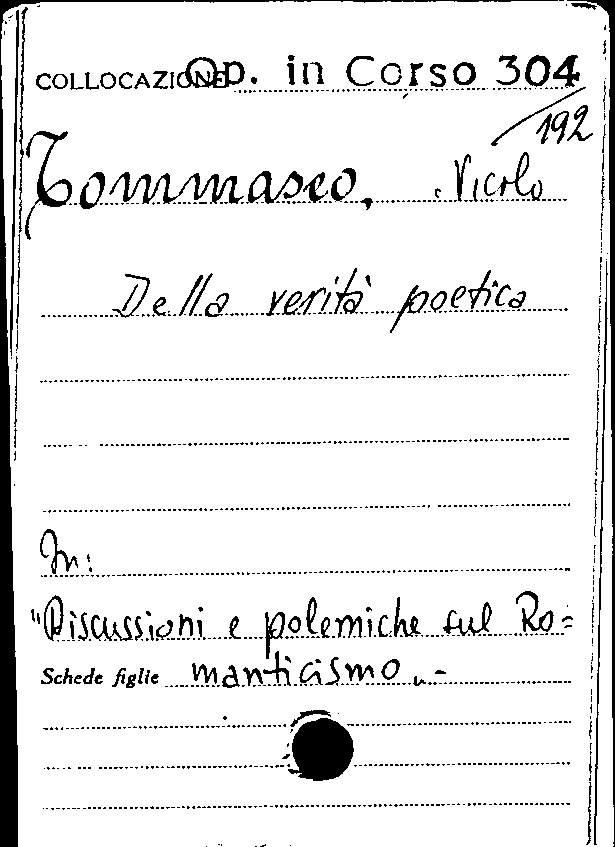 COLLOCAZIONE Op. in Corso 304
/192
Tommaseo, Nicolo
Della verità poetica
In:
"Discussioni e polemiche sul Ro=
Schede figlie manticismo„.-